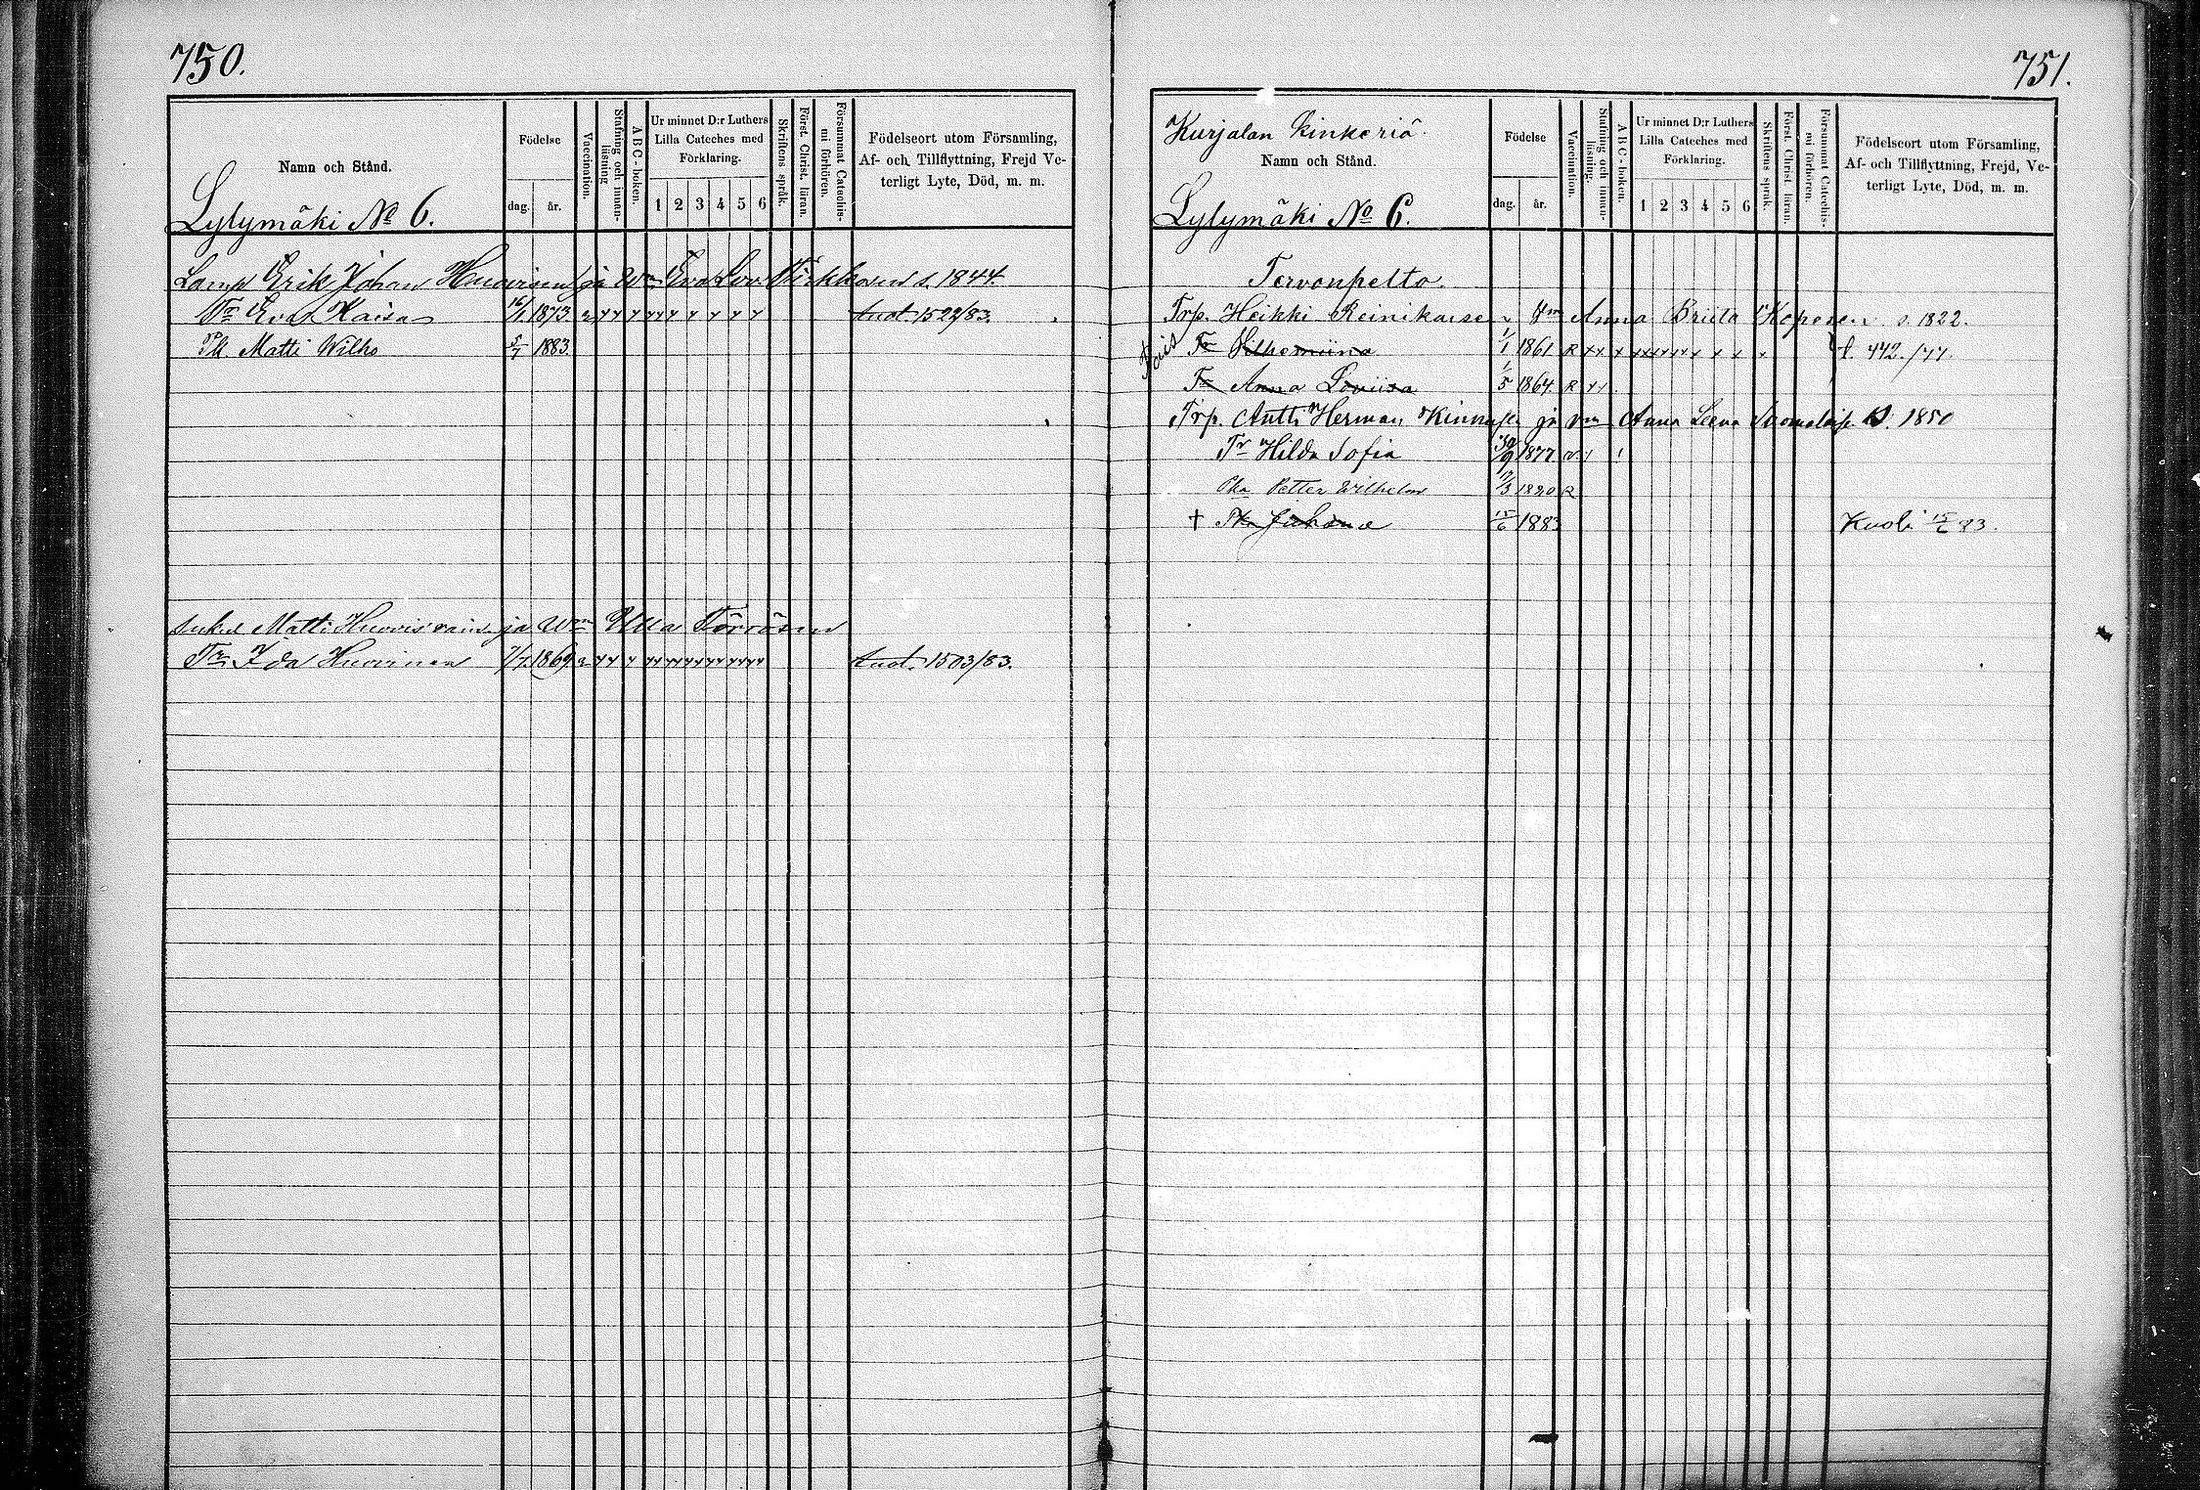 750.
Namn och Stånd.
Lylymäki No 6.
Födelse
dag. år.
Vaccination.
Stafning och innanläsning
ABC-boken.
Ur minnet D:r Luthers
Lilla Cateches med
Förklaring.
1 2 3 4 5 6
Skriftens språk.
Först. Christ. läran.
Försummat Catechismi förhören.
Födelseort utom Församling,
Af- och Tillflyttning, Frejd Ve-
terligt Lyte, Död, m. m.
Lamp Erik Johan Huovinen ja Wm Eva Lov s. 1844.
Tr Eva Kaisa 16/1 1873 1522/83.
Pk. Matti Wilho 5/7 1883.
Matti ja Wm Ulla Törrönen
Tr Ida Huovinen 7/7 1869 1503/83.
751.
Kurjalan kinkeriä.
Namn och Stånd.
Lylymäki No 6.
Födelse
dag. år.
Vaccination.
Stafning och innanläsning.
ABC-boken.
Ur minnet D:r Luthers
Lilla Cateches med
Förklaring.
1 2 3 4 5 6
Skriftens språk.
Först. Christ. läran.
Försummat Catechismi förhören.
Födelseort utom Församling,
Af- och Tillflyttning, Frejd, Ve-
terligt Lyte, Död, m. m.
Tervonpelto.
Trp. Heikki Reinikaisen Vm Anna Briita Koponen s. 1822.
Pois Tr Vilhemiina 1/1 1861 R f. 442./77.
Tr Anna Loviisa 1/5 1864 R
Trp. Antti Herman ja Vm Anna Leena s. 1850
Tr Hilda Sofia 30/9 1877
Pka Petter Wilhelm 1820 R
† Pka Juhana 15/6 1883 Kuoli 15/6 83.